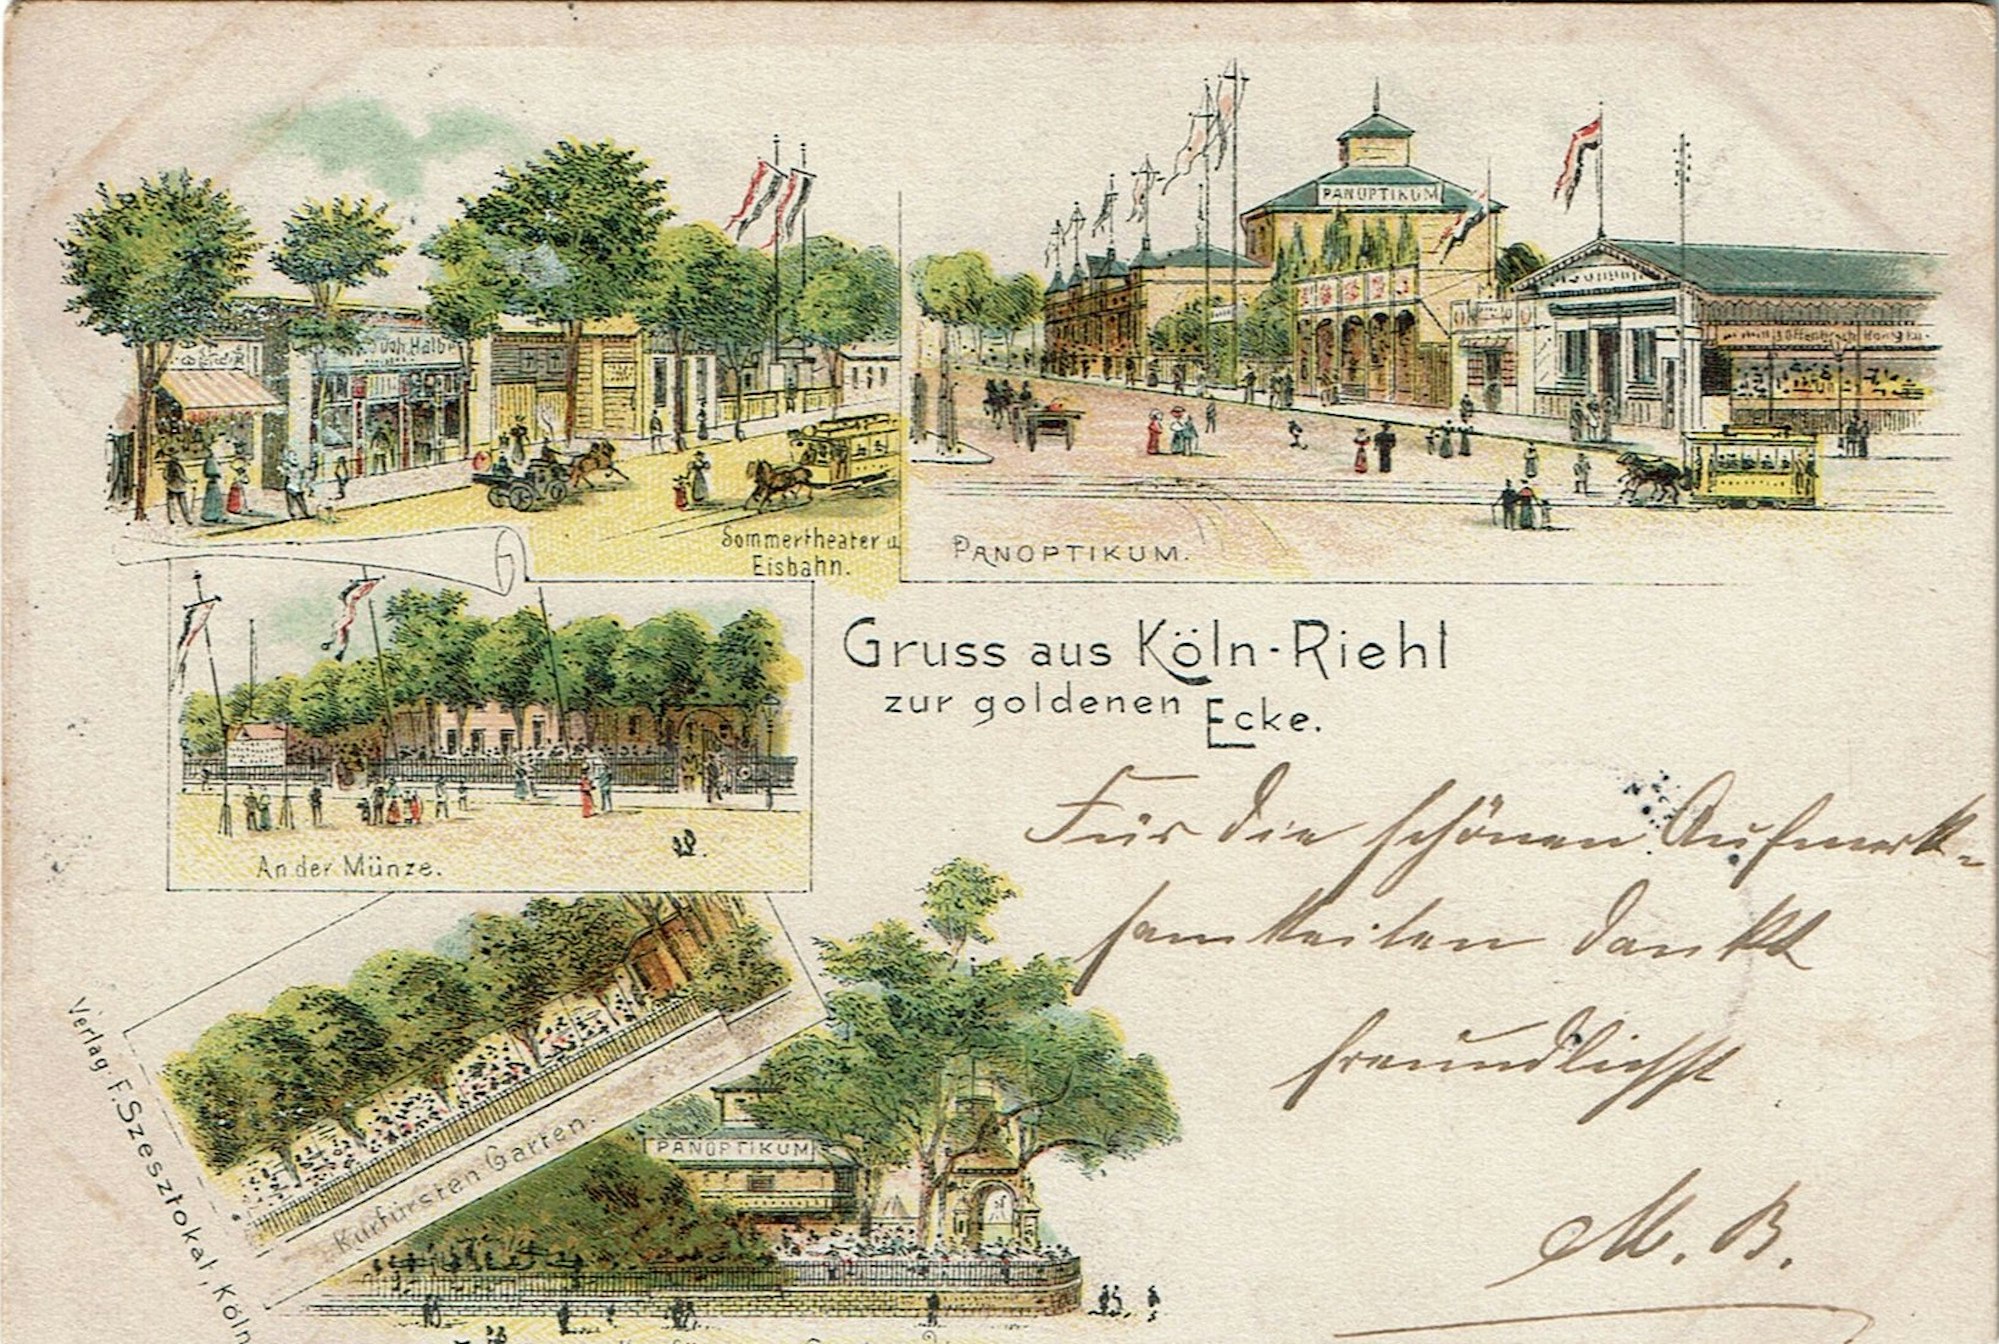 Joh. Halb
Sommertheater u
Eisbahn.
PANOPTIKUM
PANOPTIKUM.
Gruss aus Köln-Riehl
zur goldenen Ecke.
An der Münze.
Für die schönen Aufmerk-
samkeiten dankt
freundlichst
M. B.
Kurfürsten Garten.
PANOPTIKUM
Verlag F. Szesztokat, Köln